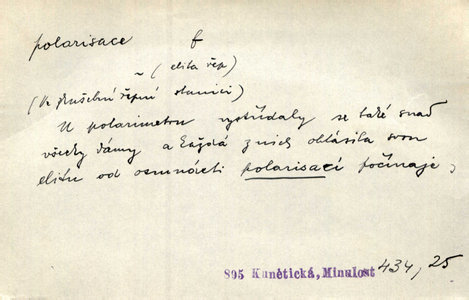 polarisace f
(elita řep)
(Ve zkušební řepní stanici)
U polarimetru vystřídaly se také snad
všecky dámy a každá z nich ohlásila svou
elitu od osmnácti polarisací počínaje,
895 Kunětická, Minulost 434, 25